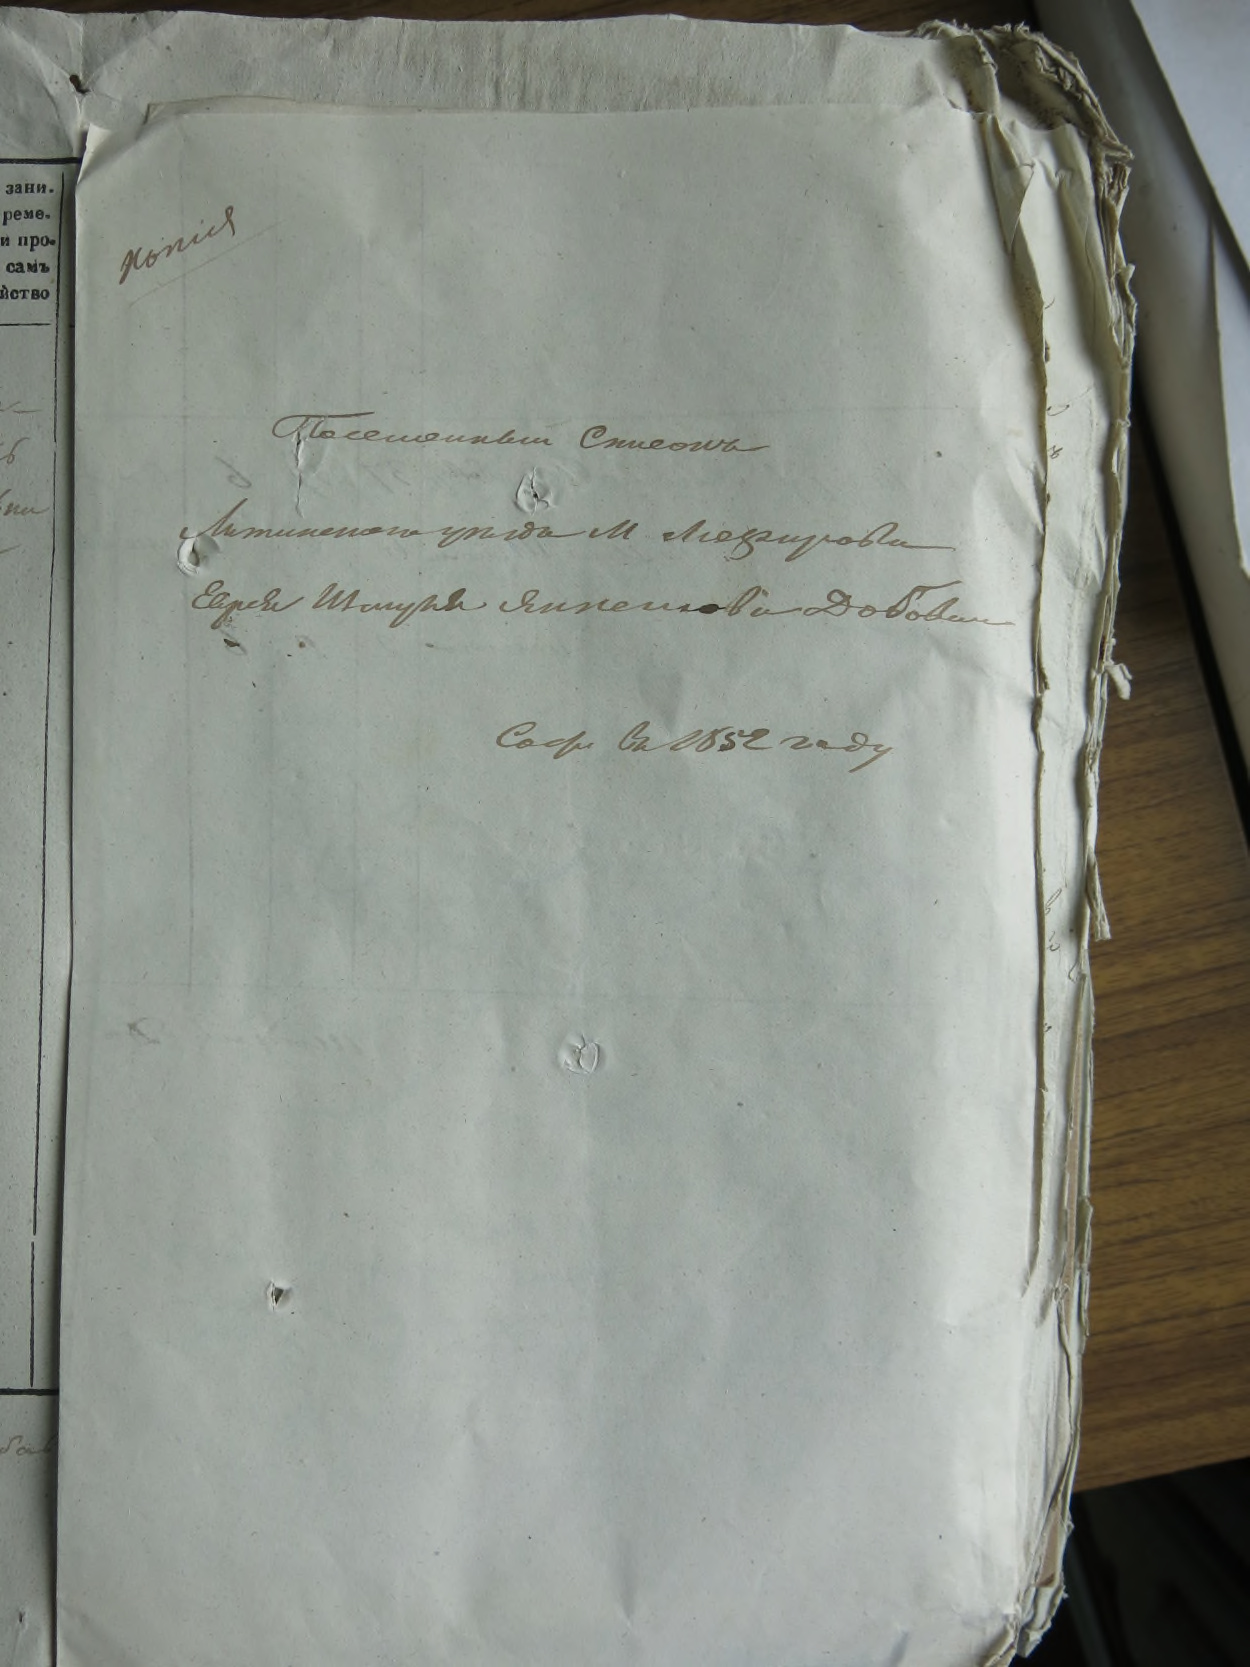 зани.
реме.
и про.
самъ
йство
Копія
Посемейный Списокъ
Литинскаго уезда М Межирова
Еврея Шмуля Янкелева Добован
Сост въ 1852 году